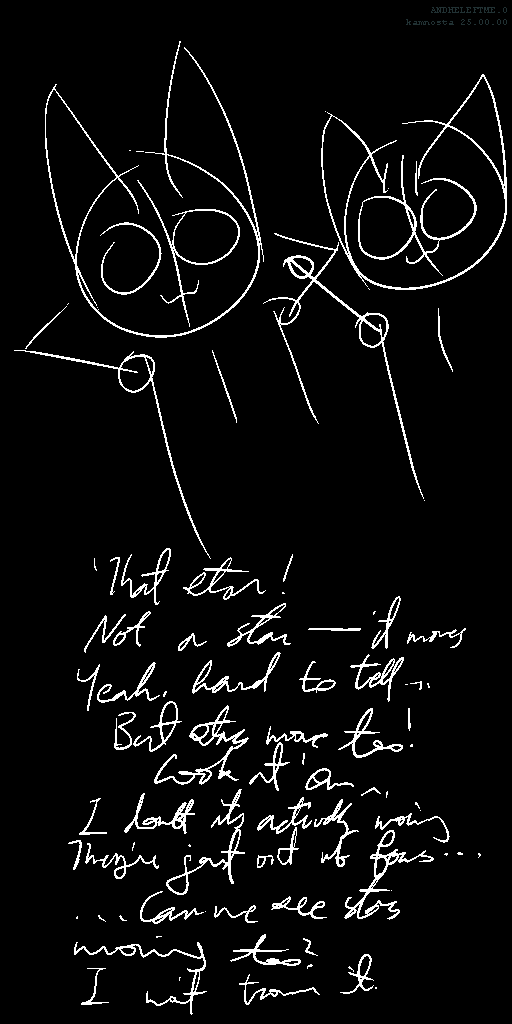 ANDHELEFTME.0
kamnosta 25.00.00
'That star!
Not a star — it moves
Yeah, hard to tell...
But stars move too!
Look at 'em
I doubt it's actually moving
They're just out of focus...
...Can we see stars
moving too?
I it